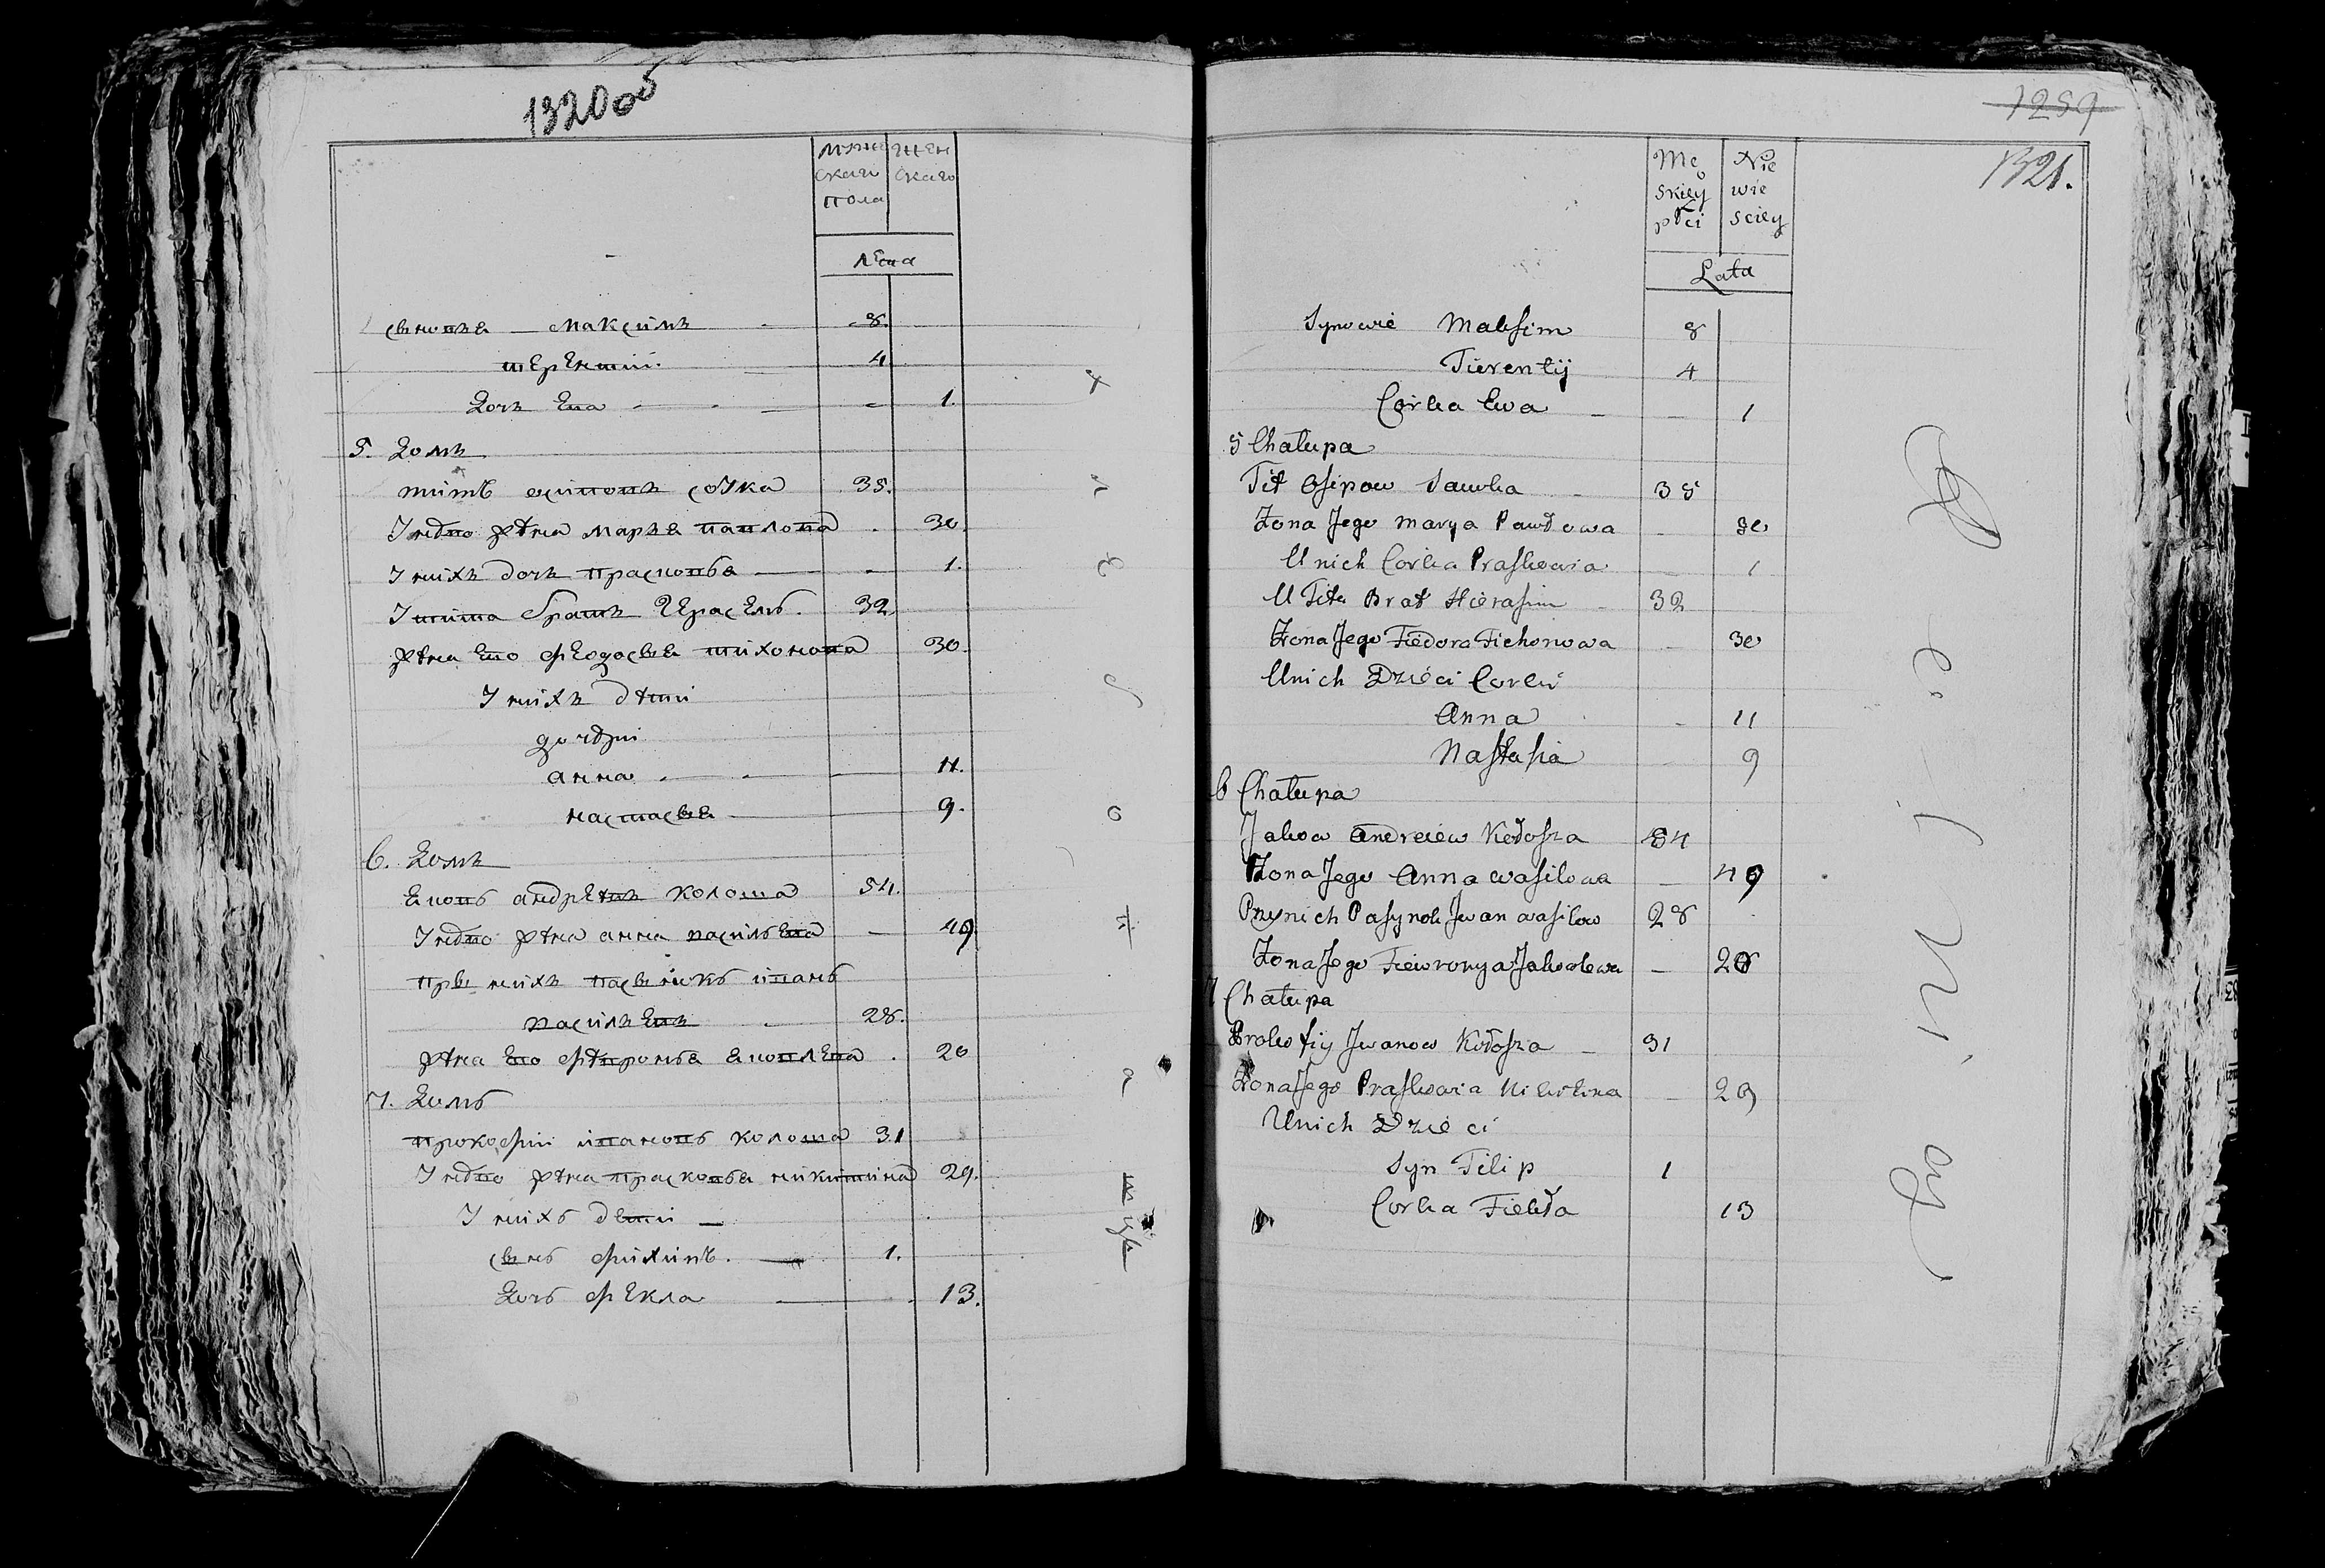 1320 об
мужескаго пола
женскаго
лета
сыновья — Максимъ - 8.
терентий. 4.
Дочь Ева - 1.
5. Домъ
титъ осиповъ соука 35.
У него жена марья павлова 30.
У нихъ дочь прасковья — 1.
У тита братъ Герасемъ. 32.
жена его феодосья тихонова 30.
У нихъ дети
дочери
анна — 11.
настасья — 9.
6. Домъ
Яковъ андреевъ колоша 54.
У него жена анна васильева — 49
при нихъ пасынокъ иванъ
васильевъ 28.
жена его февронья яковлева 20
7. Домъ
прокофий ивановъ колоша 31
У него жена прасковья никитина 29.
У нихъ дети —
сынъ филипъ. — 1.
Дочь фекла — 13.
1259
1321.
Męskiey płci
Niewiesciey
Lata
Synowie Maksim 8
Tierentij 4
Corka Ewa — 1
5 Chałupa
Tit Osipow Sawka 35
Żona Jego Marya Pawłowa 30
U nich Corka Praskowia 1
U Tita Brat Hierasim 32
Żona Jego Fiedora Tichonowa 30
U nich Dzieci Corki
Anna 11
Nastasia 9
6 Chałupa
Jakow Andreiew Kołosza 54
Żona Jego Anna Wasilowa — 49
Przynich Pasynok Jwan Wasilow 28
Żona Jego Fiewronya Jakowlewa — 20
7 Chałupa
Prokofiy Jwanow Kołosza — 31
Żona Jego Praskowia Nikitina — 29
U nich Dzieci
Syn Filip 1
Corka Fiekła 13